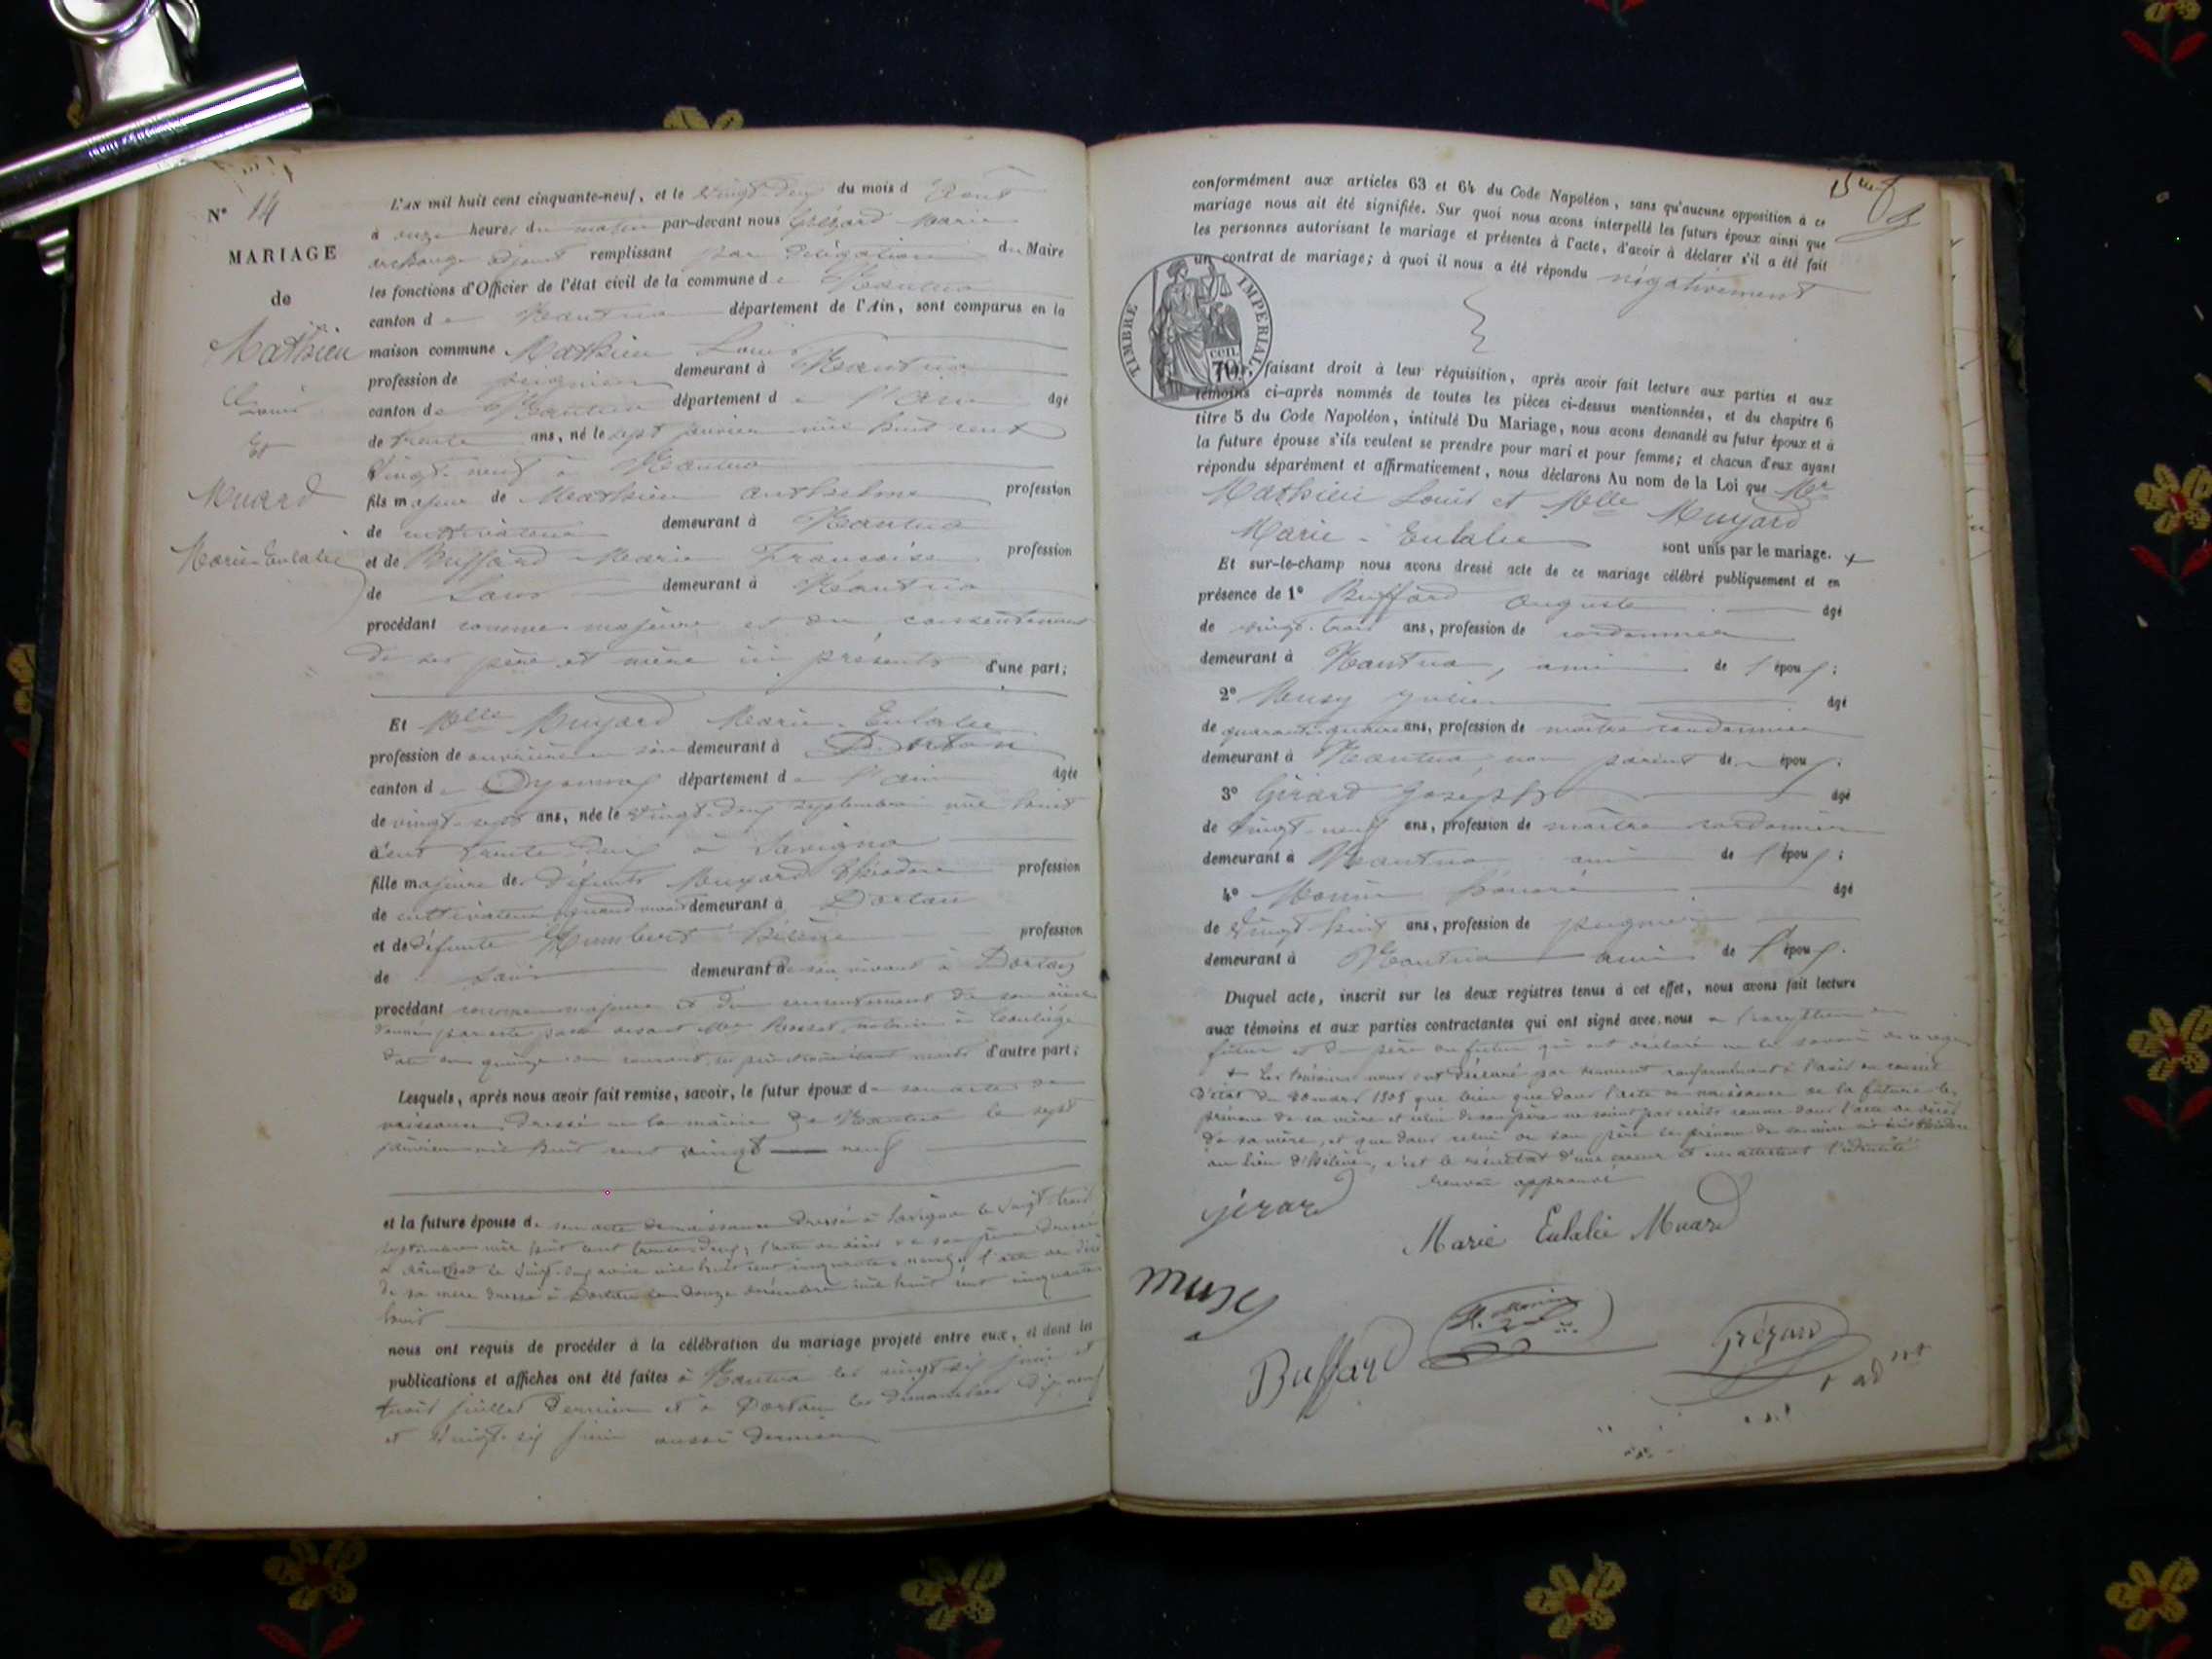 N° 14
MARIAGE
de
Mathieu
Louis
Et
Muard
Marie Eulalie
L'AN mil huit cent cinquante-neuf, et le vingt-deux du mois d'Août
à onze heures du matin par-devant nous Grézard Marie
archange adjoint remplissant par délégation du Maire
les fonctions d'Officier de l'état civil de la commune de Nantua
canton de Nantua département de l'Ain, sont comparus en la
maison commune Mathieu Louis
profession de peignier demeurant à Nantua
canton de Nantua département de l'Ain âgé
de trente ans, né le sept janvier mil huit cent
vingt-neuf à Nantua
fils majeur de Mathieu Anthelme profession
de cultivateur demeurant à Nantua
et de Buffard Marie Françoise profession
de Sans demeurant à Nantua
procédant comme majeur et du consentement
de ses père et mère ici présents d'une part;
Et Melle Muyard Marie-Eulalie
profession de ouvrière en soie demeurant à Dortan
canton d'Oyonnax département de l'ain âgée
de vingt-sept ans, née le vingt-deux septembre mil huit
cent trente-deux à Savigna
fille majeure de défunts Muyard Théodore profession
de cultivateur quand vivait demeurant à Dortan
et de défunte Humbert Hélène profession
de sans demeurant de son vivant à Dortan
procédant comme majeure et du consentement de son aïeul
donné par acte passé devant Me Rosset, notaire à
date du quinze courant, ses père et mère étant morts d'autre part;
Lesquels, après nous avoir fait remise, savoir, le futur époux de son acte de
naissance dressé en la mairie de Nantua le sept
janvier mil huit cent vingt neuf
et la future épouse de son acte de naissance dressé à Savigna le vingt-trois
septembre mil huit cent trente-deux, l'acte de décès de son père dressé
à le vingt-cinq mil huit cent cinquante neuf, l'acte de décès
de sa mère dressé à Dortan le douze décembre mil huit cent cinquante
huit
nous ont requis de procéder à la célébration du mariage projeté entre eux, et dont les
publications et affiches ont été faites à Nantua les vingt-six juin et
trois juillet dernier et à Dortan les dimanches dix-neuf
et vingt-six juin aussi dernier
conformément aux articles 63 et 64 du Code Napoléon, sans qu'aucune opposition à ce
mariage nous ait été signifiée. Sur quoi nous avons interpellé les futurs époux ainsi que
les personnes autorisant le mariage et présentes à l'acte, d'avoir à déclarer s'il a été fait
un contrat de mariage; à quoi il nous a été répondu négativement
TIMBRE IMPERIAL
70 cen.
faisant droit à leur réquisition, après avoir fait lecture aux parties et aux
témoins ci-après nommés de toutes les pièces ci-dessus mentionnées, et du chapitre 6
titre 5 du Code Napoléon, intitulé Du Mariage, nous avons demandé au futur époux et à
la future épouse s'ils veulent se prendre pour mari et pour femme; et chacun d'eux ayant
répondu séparément et affirmativement, nous déclarons Au nom de la Loi que Mr
Mathieu Louis et Melle Muyard
Marie-Eulalie sont unis par le mariage. +
Et sur-le-champ nous avons dressé acte de ce mariage célébré publiquement et en
présence de 1° Buffard Auguste âgé
de vingt-trois ans, profession de cordonnier
demeurant à Nantua, ami de l'époux;
2° Musy Julien âgé
de quarante-quatre ans, profession de maître cordonnier
demeurant à Nantua, non parent des époux;
3° Gérard Joseph âgé
de vingt-neuf ans, profession de maître cordonnier
demeurant à Nantua ami de l'époux;
4° Monin Honoré âgé
de vingt-huit ans, profession de peignier
demeurant à Nantua ami de l'époux.
Duquel acte, inscrit sur les deux registres tenus à cet effet, nous avons fait lecture
aux témoins et aux parties contractantes qui ont signé avec nous à l'exception du
futur et du père du futur qui ont déclaré ne le savoir
+ Les témoins nous ont déclaré par serment conformément à l'avis du conseil
d'état du 30 mars 1808 que bien que dans l'acte de naissance de la future les
prénoms de sa mère et celui de son père ne soient pas écrits comme dans l'acte de décès
de sa mère, et que dans celui de son père le prénom de sa mère
au lieu d'Hélène, c'est le résultat d'une erreur et en attestent l'identité
Renvoi approuvé
gérard
Marie Eulalie Muard
musy
Buffard
H. Monin
Grézard
adnt